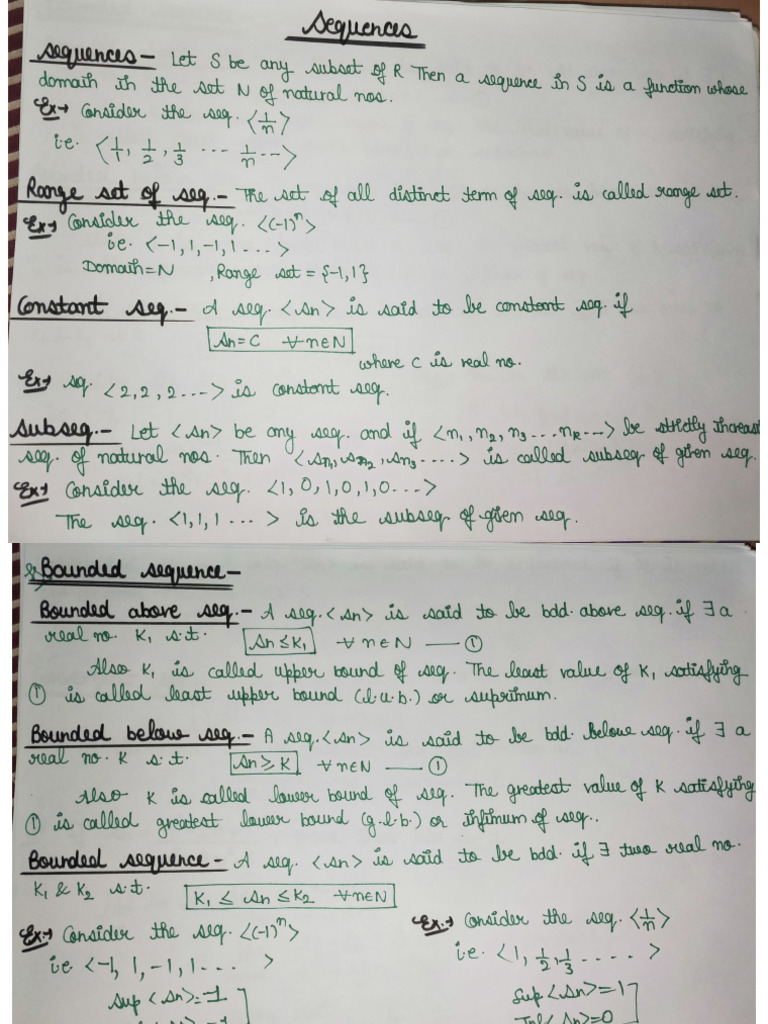 Sequences
Sequences - Let S be any subset of R Then a sequence in S is a function whose
domain in the set N of natural nos.
Ex→ Consider the seq. <1/n>
i.e. <1/1, 1/2, 1/3 --- 1/n --->
Range set of seq. - The set of all distinct term of seq. is called range set.
Ex→ Consider the seq. <(-1)ⁿ>
i.e. <-1, 1, -1, 1 ....>
Domain = N , Range set = {-1, 1}
Constant seq. - A seq. <Sn> is said to be constant seq. if
Sn = C ∀ n∈N
where C is real no.
Ex→ sq. <2, 2, 2 ....> is constant seq.
Subseq. - Let <Sn> be any seq. and if <n₁, n₂, n₃ ... nR ...> be strictly increas
seq. of natural nos. Then <Sn₁, Sn₂, Sn₃ ....> is called subseq of given seq.
Ex→ Consider the seq. <1, 0, 1, 0, 1, 0...>
The seq. <1, 1, 1 ... > is the subseq of given seq.
Bounded sequence -
Bounded above seq. - A seq. <Sn> is said to be bdd. above seq. if ∃ a
real no. K₁ s.t. Sn ≤ K₁ ∀ n∈N — ①
Also K₁ is called upper bound of seq. The least value of K₁ satisfying
① is called least upper bound (l.u.b.) or suprimum.
Bounded below seq. - A seq. <Sn> is said to be bdd. below seq. if ∃ a
real no. K s.t. Sn ≥ K ∀ n∈N — ①
Also K is called lower bound of seq. The greatest value of K satisfying
① is called greatest lower bound (g.l.b.) or infimum of seq..
Bounded sequence - A seq. <Sn> is said to be bdd. if ∃ two real no.
K₁ & K₂ s.t. K₁ ≤ Sn ≤ K₂ ∀ n∈N
Ex→ Consider the seq. <(-1)ⁿ>
i.e. <-1, 1, -1, 1... >
Sup <Sn> = 1
Ex→ Consider the seq. <1/n>
i.e. <1, 1/2, 1/3 ..... >
Sup <Sn> = 1
Inf <Sn> = 0